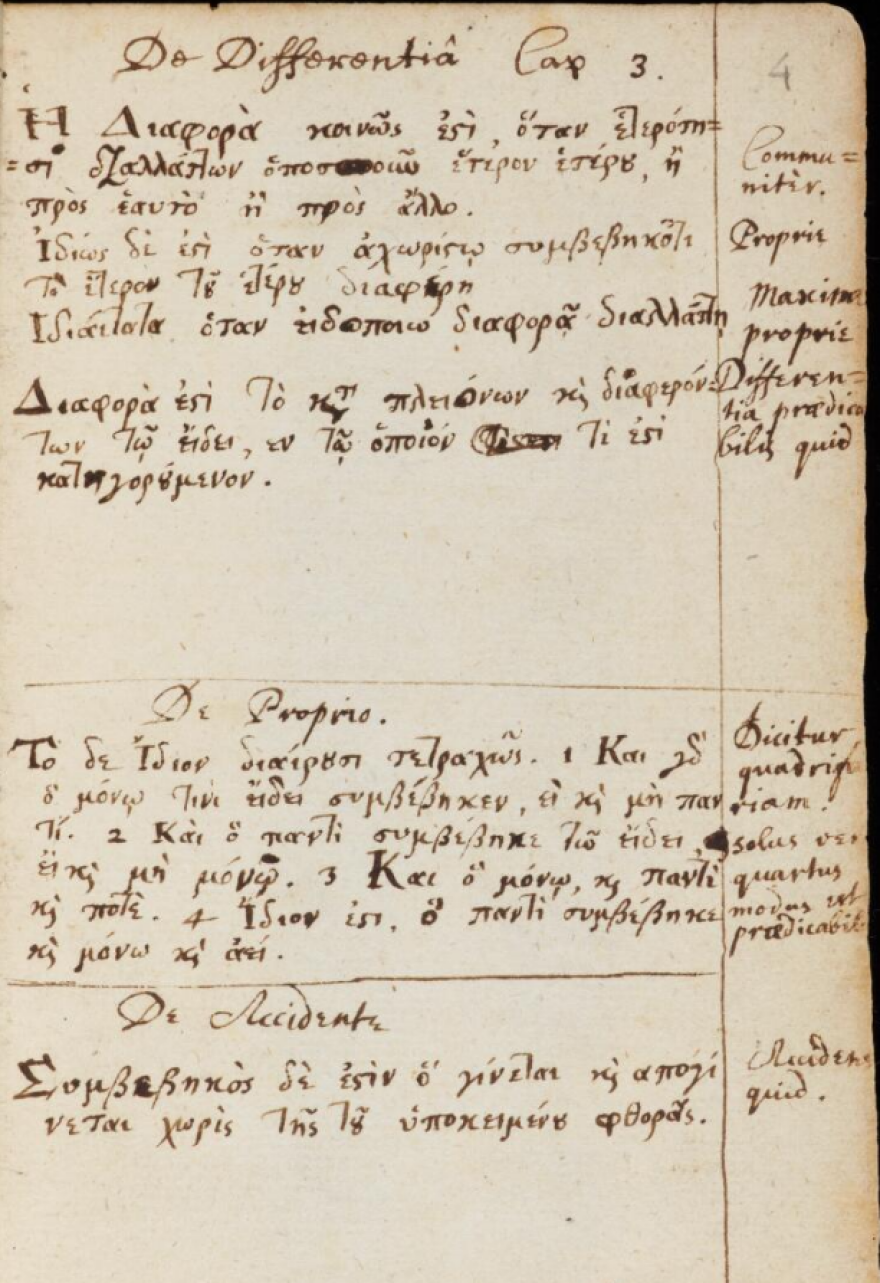 De Differentiâ Cap 3.
4
Η Διαφορὰ κοινῶς ἐϛὶ, ὅταν ἑτερότη=
=σι διαλλάττων ὁποσ οιῶ ἕτερον ἑτέρȣ, ἢ
πρὸς ἑαυτὸ ἢ πρὸς ἄλλο.
Commu=
nitèr.
Ἰδίως δὲ ἐϛὶ ὅταν ἀχωρίϛῳ συμβεβηκότι
τὸ ἕτερον τȣ͂ ἑτέρȣ διαφέρη
Proprie
Ιδιαίτατα ὅταν ειδοποιω διαφορᾷ διαλλάττη
Maxime
proprie
Διαφορὰ ἐϛὶ τὸ κτ̀ πλειόνων κ̀ διαφερόν=
των τῷ εἴδει, εν τῷ ὁποῖόν τὶ ἐϛὶ
κατηγορȣ́μενον.
Differen=
tia prædica
bilis quid
De Proprio.
Το δε Ἴδιον διαίρȣσι τετραχῶς. 1 Και γδ̀
ὃ μόνῳ τινὶ εἴδει συμβέβηκεν, εἰ κ̀ μὴ παν
τί. 2 Κὰι ὃ παντὶ συμβέβηκε τῶ εἴδει,
εἴ κ̀ μὴ μόνῳ. 3 Και ὃ μόνῳ, κ̀ παντὶ
κ̀ ποτὲ. 4 Ἴδιον ἐϛι, ὃ παντὶ συμβέβηκε
κ̀ μόνω κ̀ ἀεί.
Dicitur
quadrifa
riam.
solus ver
quartus
modus est
prædicabil
De Accidente
Συμβεβηκὸς δὲ ἐϛὶν ὃ γίνεται κ̀ απογί
νεται χωρὶς τῆς τȣ͂ ὑποκειμένȣ φθορᾶς.
Accidens
quid.